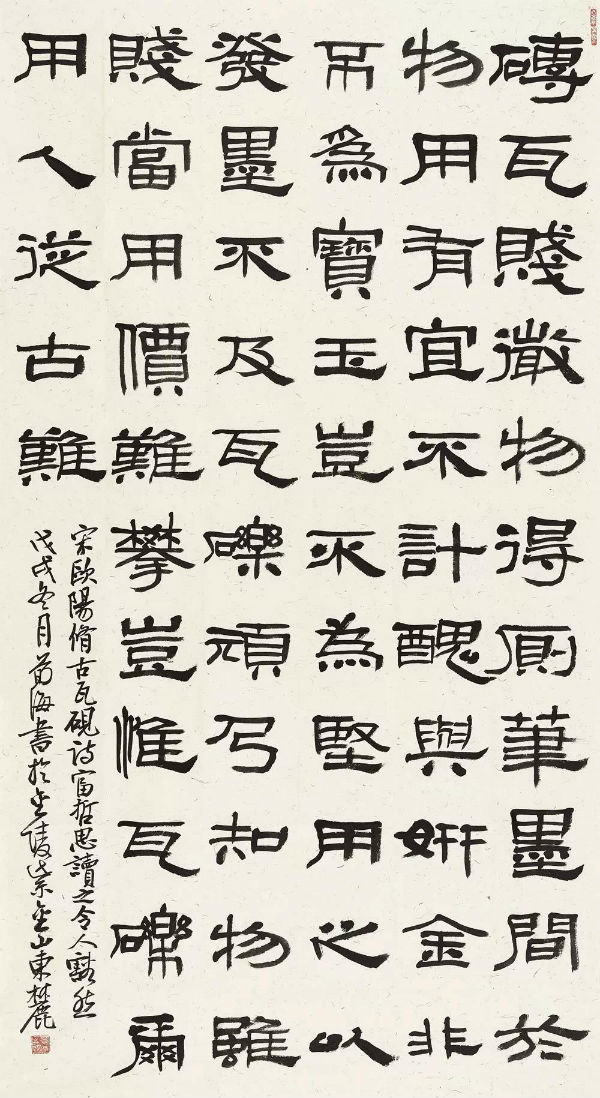 磚瓦賤微物得廁筆墨間於
物用有宜不計醜與妍金非
不爲寶玉豈不為堅用之以
發墨不及瓦礫頑乃知物雖
賤當用價難攀豈惟瓦礫爾
用人從古難
宋歐陽脩古瓦硯詩富哲思讀之令人豁然
戊戌冬月海書於金陵紫金山東麓